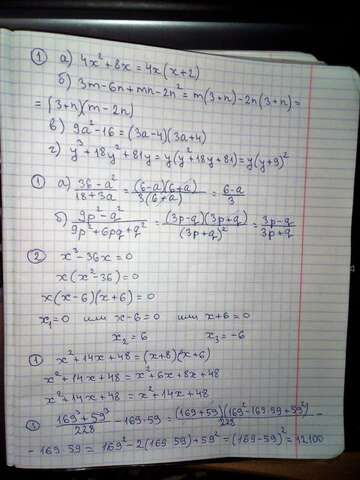 ① а) 4x²+8x = 4x(x+2)
б) 3m-6n+mn-2n² = m(3+n)-2n(3+n) =
= (3+n)(m-2n)
в) 9a²-16 = (3a-4)(3a+4)
г) y³+18y²+81y = y(y²+18y+81) = y(y+9)²
① а) (36-a²)/(18+3a) = ((6-a)(6+a))/(3(6+a)) = (6-a)/3
б) (9p²-q²)/(9p²+6pq+q²) = ((3p-q)(3p+q))/(3p+q)² = (3p-q)/(3p+q)
② x³-36x=0
x(x²-36)=0
x(x-6)(x+6)=0
x₁=0 или x-6=0 или x+6=0
x₂=6 x₃=-6
① x²+14x+48 = (x+8)(x+6)
x²+14x+48 = x²+6x+8x+48
x²+14x+48 = x²+14x+48
③ (169³+59³)/228 - 169·59 = ((169+59)(169²-169·59+59²))/228 -
- 169·59 = 169²-2(169·59)+59² = (169-59)² = 12100